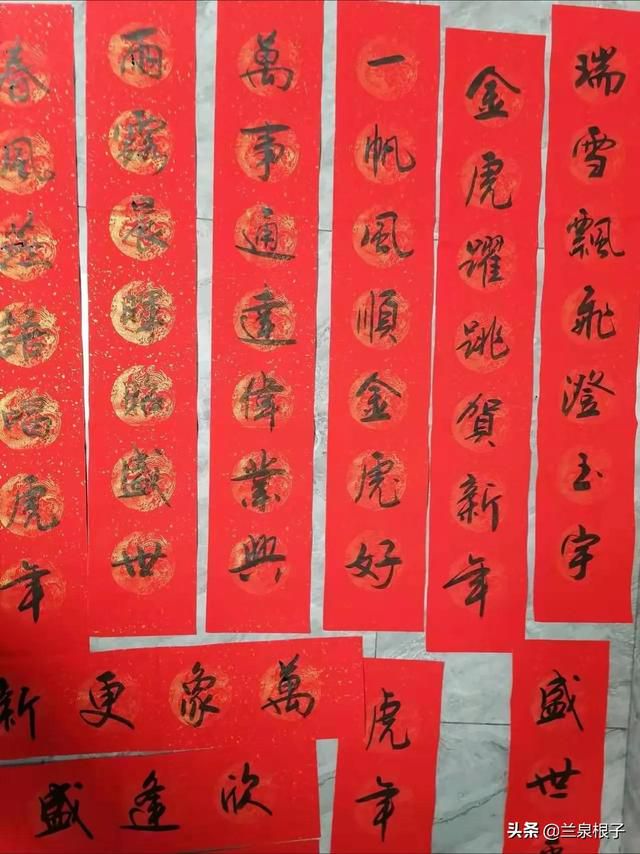 瑞雪飄飛澄玉宇
金虎躍跳賀新年
一帆風順金虎好
萬事通達偉業興
雨晨暉盛世
春風燕語唱虎年
萬象更新
欣逢盛
盛世
虎年
头条 @兰泉根子